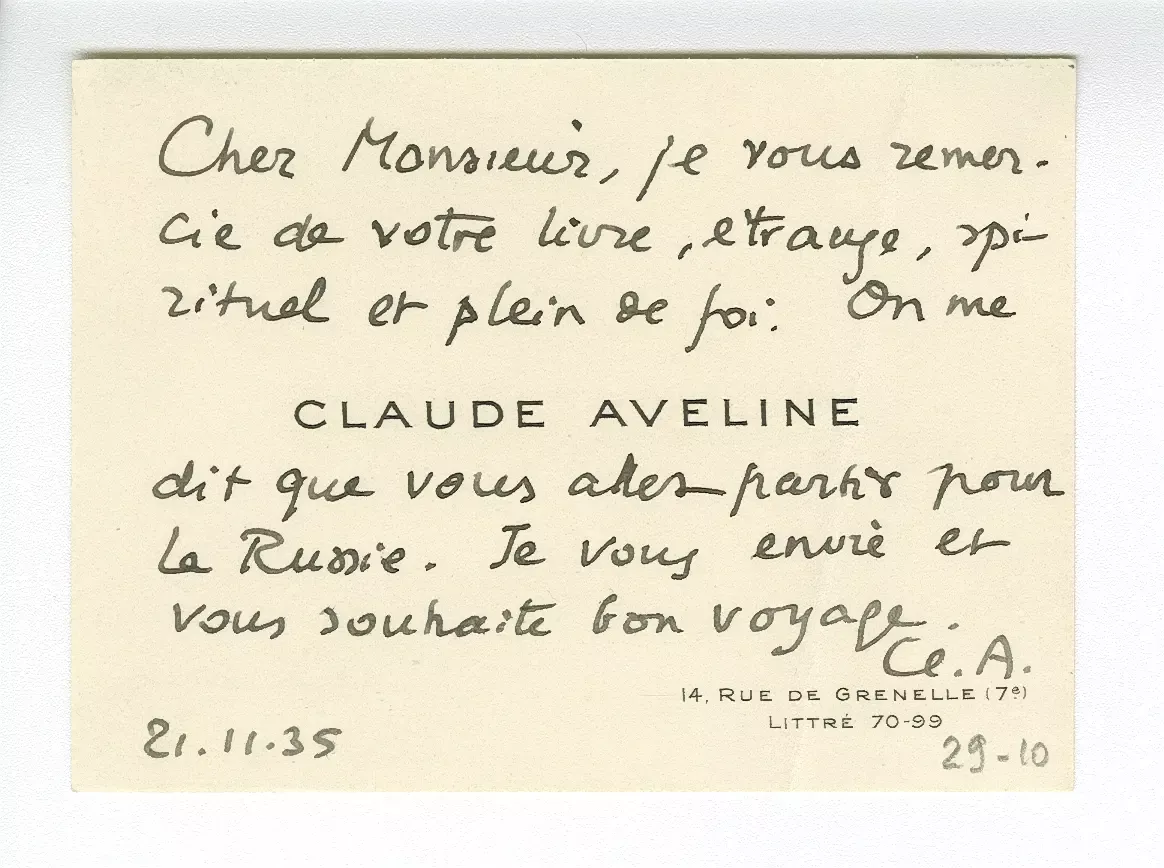 Cher Monsieur, je vous remer-
cie de votre livre, étrange, spi-
rituel et plein de foi. On me
CLAUDE AVELINE
dit que vous allez partir pour
la Russie. Je vous envie et
vous souhaite bon voyage.
Cl. A.
14, RUE DE GRENELLE (7e)
LITTRÉ 70-99
21.11.35
29-10